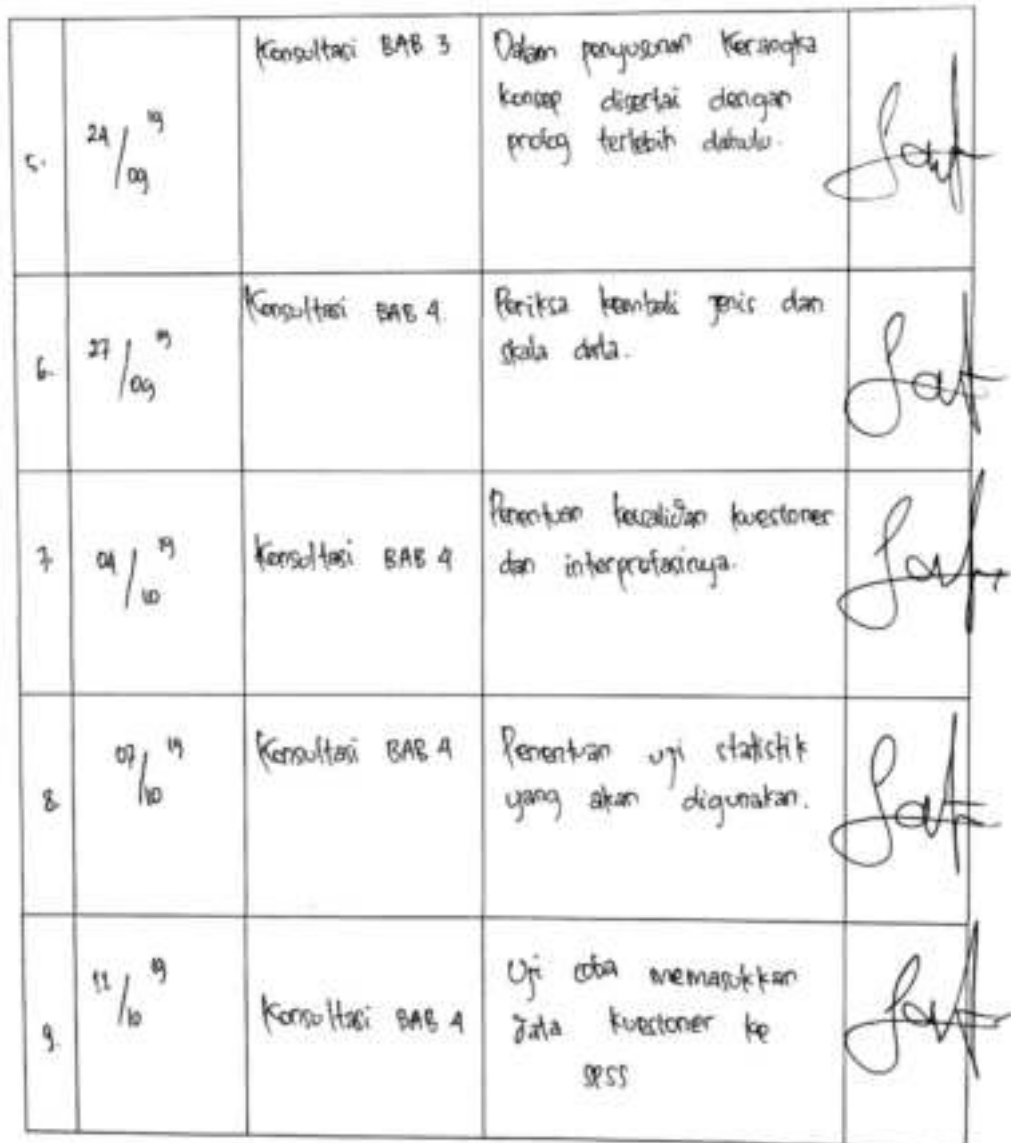 5.
24/09 19
Konsultasi BAB 3
Dalam penyusunan Kerangka
konsep disertai dengan
prolog terlebih dahulu.
6.
27/09 19
Konsultasi BAB 4
Periksa kembali jenis dan
skala data.
7
04/10 19
Konsultasi BAB 4
Penentuan kevalidan kuestoner
dan interpretasinya.
8.
07/10 19
Konsultasi BAB 4
Penentuan uji statistik
yang akan digunakan.
9.
11/10 19
Konsultasi BAB 4
Uji coba memasukkan
data kuestoner ke
SPSS